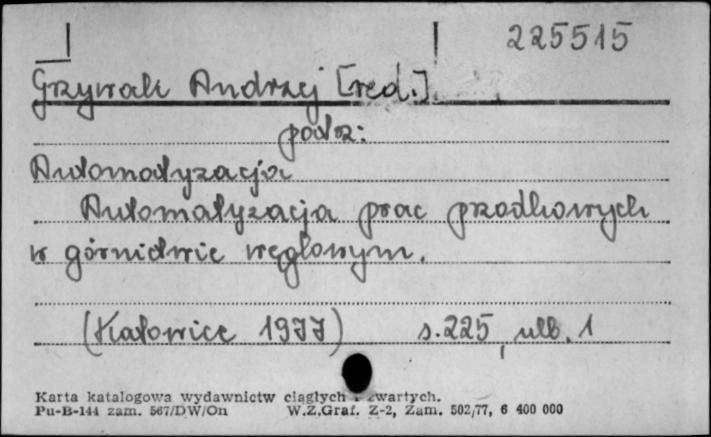 225515
Grzywak Andrzej [red.]
patrz:
Automatyzacja
Automatyzacja prac przodkowych
w górnictwie węglowym.
(Katowice 1977) s. 225, nlb. 1
Karta katalogowa wydawnictw ciągłych i zwartych.
Pu-B-144 zam. 567/DW/On W.Z.Graf. Z-2, Zam. 502/77, 6 400 000